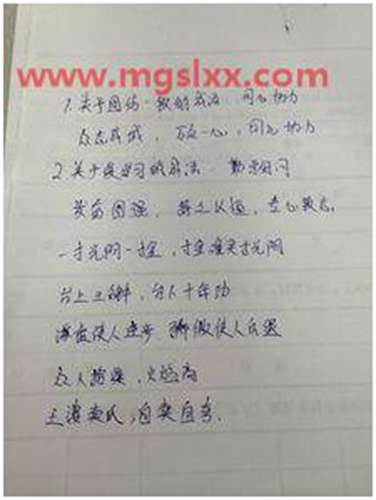 www.mgslxx.com
1.关于团结一致的成语：同心协力
众志成城，万众一心，同心协力
2.关于是学习的成语：勤学好问
发奋图强，持之以恒，专心致志
一寸光阴一寸金，寸金难买寸光阴
台上三分钟，台下十年功
谦虚使人进步 骄傲使人落后
众人拾柴，火焰高
王婆卖瓜，自卖自夸.